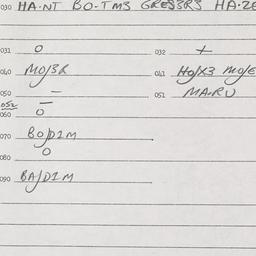 030 HA·NT BO-TM3 GRE33R3 HA·ZE
031 O 032 +
040 MO/3R 041 HO/X3 MO/E
050 — 051 MA·RU
052 —
060 O
070 BO/DIM
080 O
090 BA/DIM